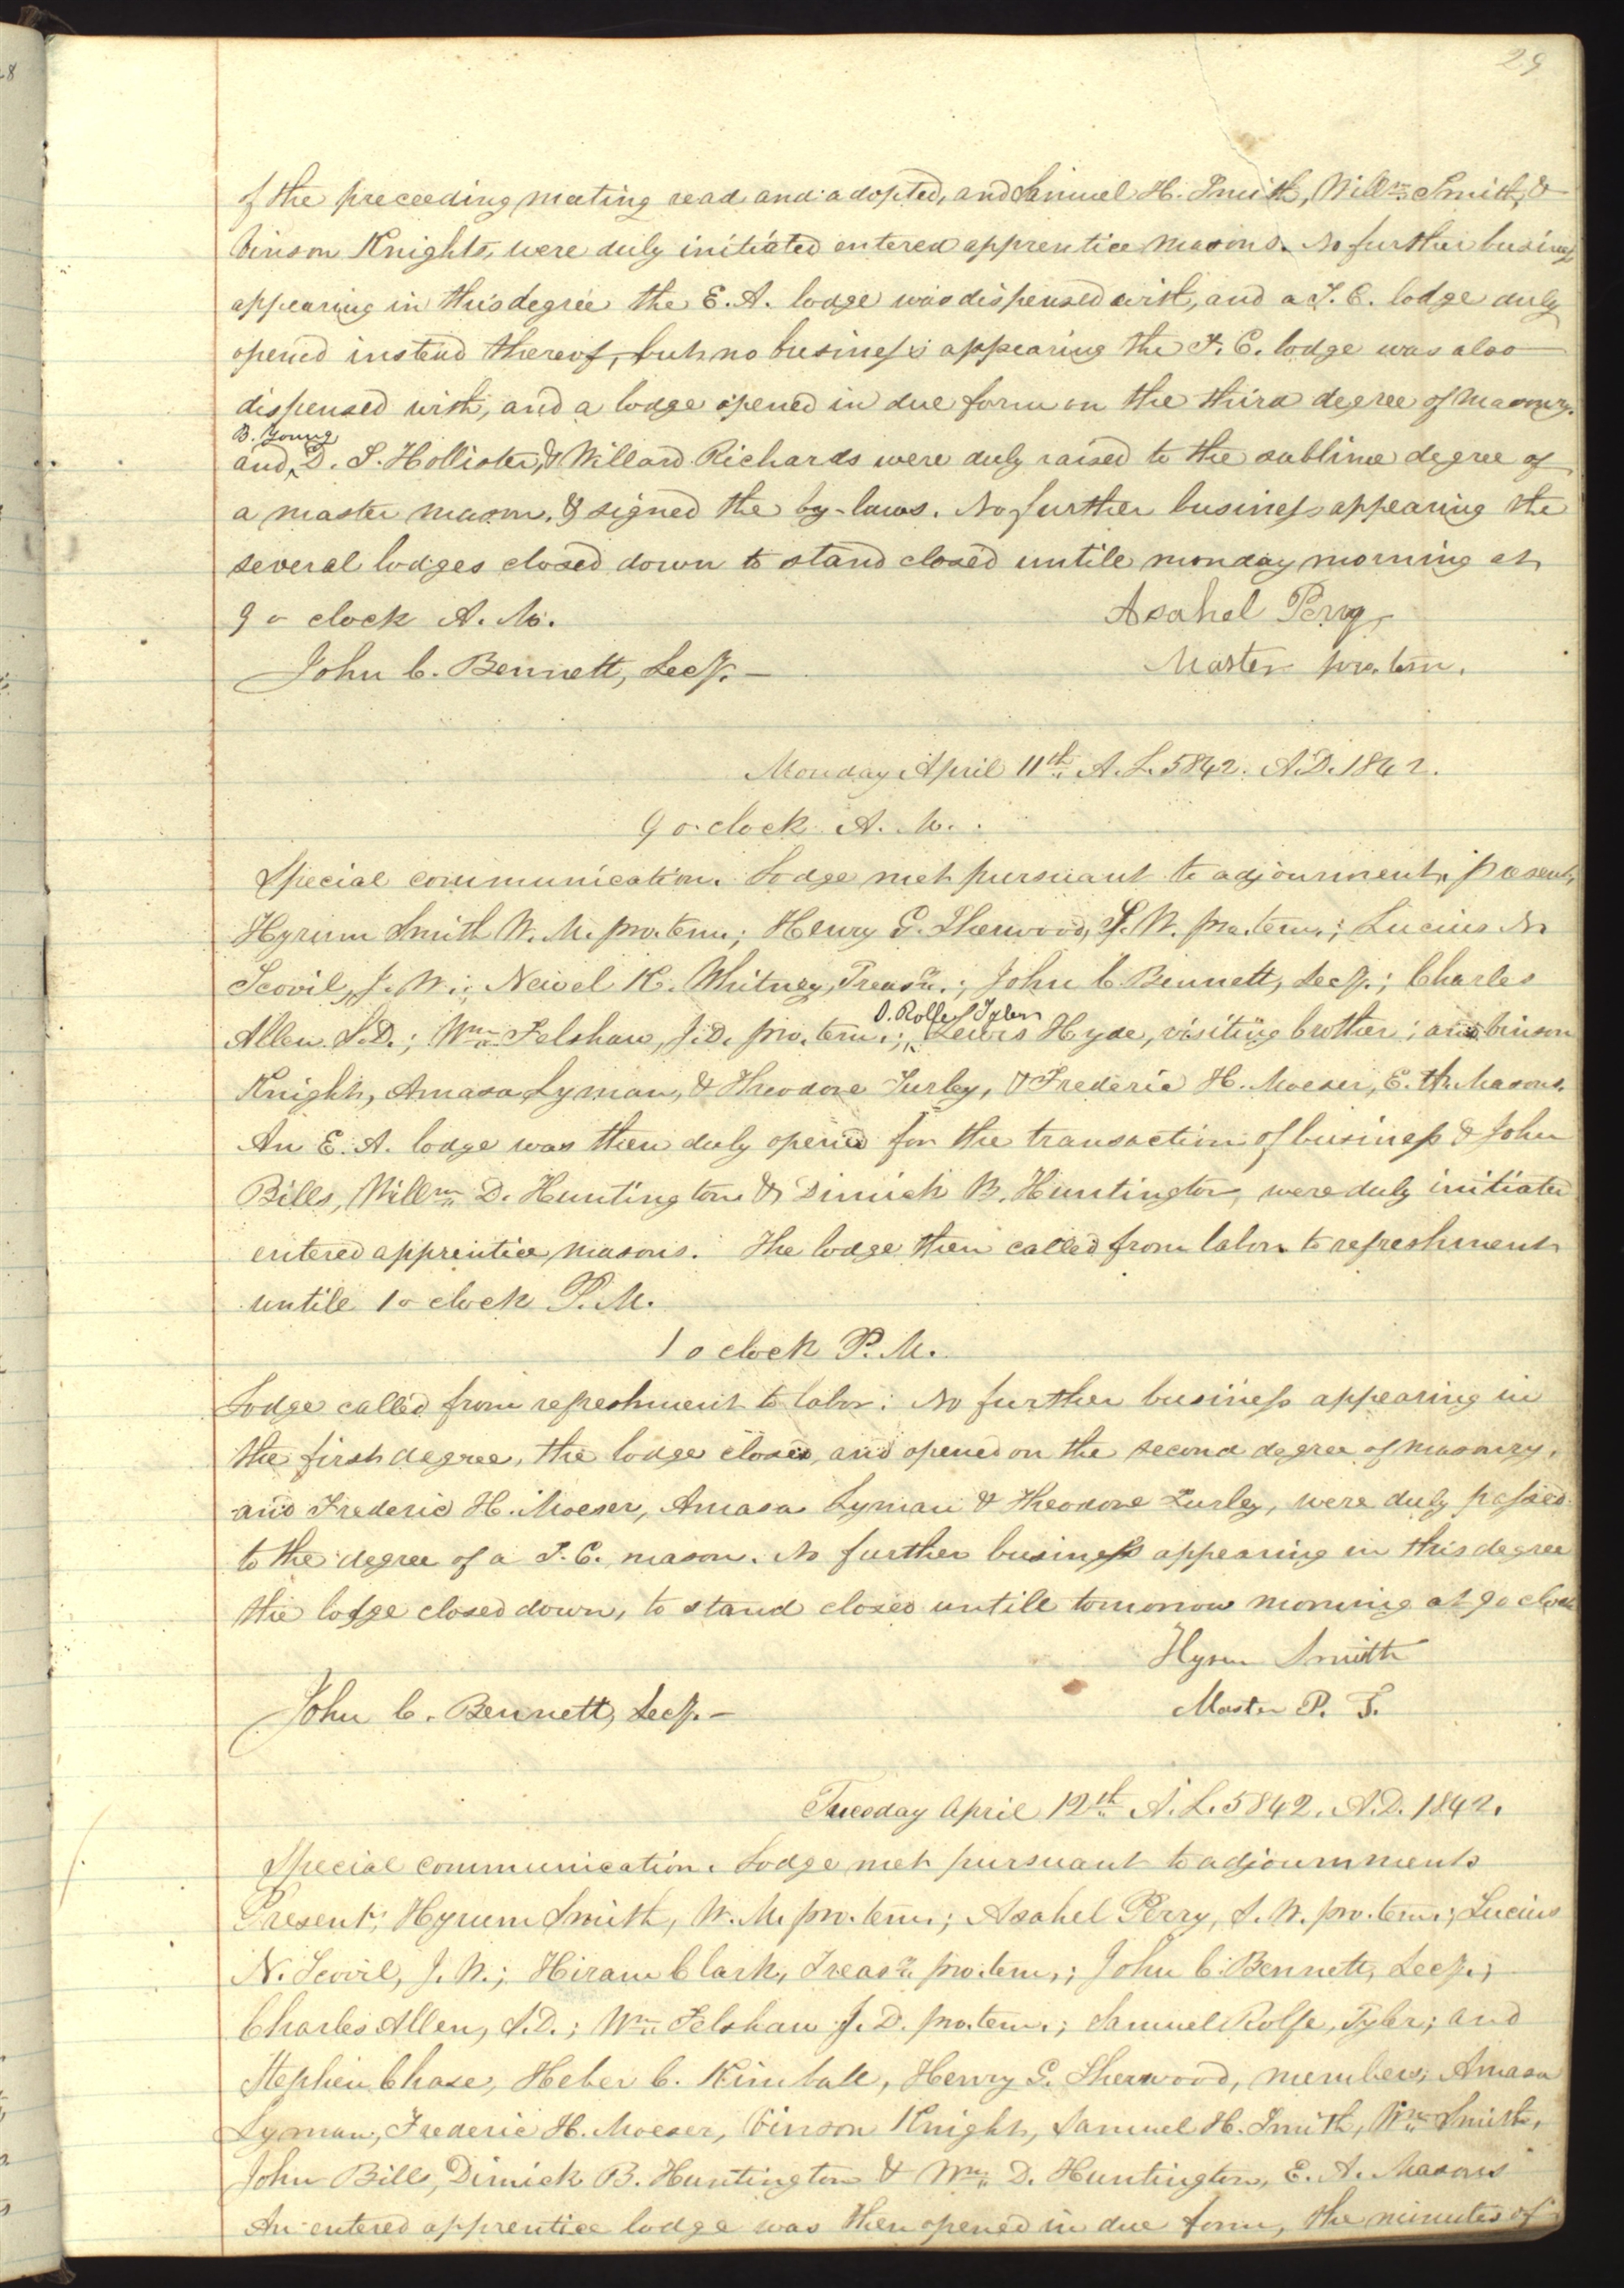 29
of the preceeding meeting read and adopted, and Samuel H. Smith, Willm Smith, &
Vinson Knights, were duly initiated entered apprentice masons. No further business
appearing in this degree the E. A. lodge was dispensed with, and a F. C. lodge duly
opened instead thereof, but no business appearing the F. C. lodge was also
dispensed with, and a lodge opened in due form on the third degree of Masonry.
B. Young
and D. S. Hollister, & Willard Richards were duly raised to the sublime degree of
a master mason, & signed the by-laws. No further business appearing the
several lodges closed down to stand closed untile monday morning at
9 o clock A. M.
Asahel Perry,
John C. Bennett, Secy.
Master pro. tem.
Monday April 11th A. L. 5842. A.D. 1842.
9 o clock A. M.
Special communication. Lodge met pursuant to adjournment, present,
Hyrum Smith W. M. pro. tem.; Henry G. Sherwood, S. W. pro. tem.; Lucius N.
Scovil, J. W.; Newel K. Whitney, Treasr.; John C. Bennett, Secy.; Charles
Allen S.D.; Wm Felshaw, J.D. pro. tem.; Lewis Hyde, visiting brother; and Vinson
Rolfe Tyler
Knight, Amasa Lyman, & Theodore Turley, & Frederic H. Moeser, E. A. Masons.
An E. A. lodge was then duly opened for the transaction of business & John
Bills, Willm D. Huntington & Dimick B. Huntington, were duly initiated
entered apprentice masons. The lodge then called from labor to refreshment
untile 1 o clock P. M.
1 o clock P. M.
Lodge called from refreshment to labor: No further business appearing in
the first degree, the lodge closed, and opened on the second degree of masonry,
and Frederic H. Moeser, Amasa Lyman & Theodore Turley, were duly passed
to the degree of a F. C. mason. No further business appearing in this degree
the lodge closed down, to stand closed untile tomorrow morning at 9 o clock
Hyrum Smith
John C. Bennett, Secy.
Master P. T.
Tuesday April 12th A. L. 5842. A.D. 1842.
Special communication. Lodge met pursuant to adjournment
Present, Hyrum Smith, W. M. pro. tem.; Asahel Perry, S. W. pro. tem.; Lucius
N. Scovil, J. W.; Hiram Clark, Treasr. pro. tem.; John C. Bennett, Secy.;
Charles Allen, S.D.; Wm Felshaw J. D. pro. tem.; Samuel Rolfe, Tyler; and
Stephen Chase, Heber C. Kimball, Henry G. Sherwood, members; Amasa
Lyman, Frederic H. Moeser, Vinson Knight, Samuel H. Smith, Wm Smith,
John Bills, Dimick B. Huntington & Wm D. Huntington, E. A. Masons
An entered apprentice lodge was then opened in due form, the minutes of